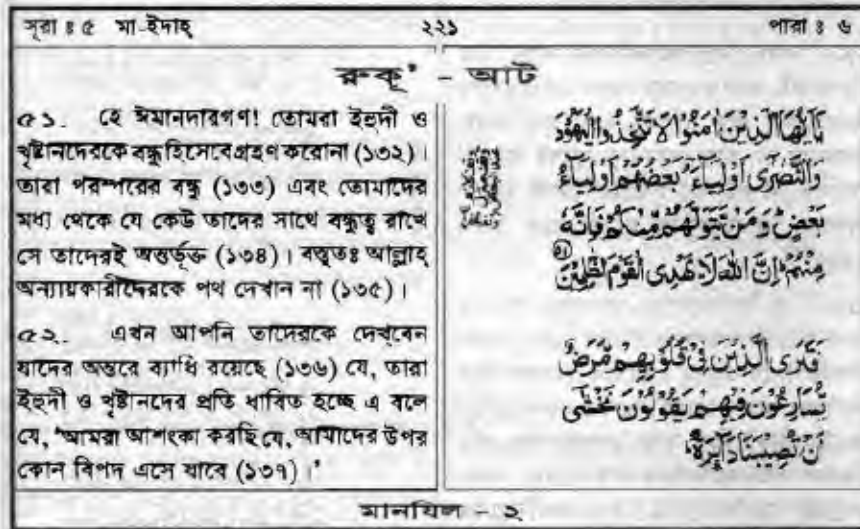 সূরা ঃ ৫ মা-ইদাহ্ ২২১ পারা ঃ ৬
রুকূ' - আট
৫১. হে ঈমানদারগণ! তোমরা ইহুদী ও
খৃষ্টানদেরকে বন্ধু হিসেবে গ্রহণ করোনা (১৩২)।
তারা পরস্পরের বন্ধু (১৩৩) এবং তোমাদের
মধ্য থেকে যে কেউ তাদের সাথে বন্ধুত্ব রাখে
সে তাদেরই অন্তর্ভূক্ত (১৩৪)। বস্তুতঃ আল্লাহ্
অন্যায়কারীদেরকে পথ দেখান না (১৩৫)।
৫২. এখন আপনি তাদেরকে দেখ্‌বেন
যাদের অন্তরে ব্যাধি রয়েছে (১৩৬) যে, তারা
ইহুদী ও খৃষ্টানদের প্রতি ধাবিত হচ্ছে এ বলে
যে, 'আমরা আশংকা করছি যে, আমাদের উপর
কোন বিপদ এসে যাবে (১৩৭)।'
يٰٓاَيُّهَا الَّذِيْنَ اٰمَنُوْا لَا تَتَّخِذُوا الْيَهُوْدَ
وَالنَّصٰرٰٓى اَوْلِيَآءَ ۘ بَعْضُهُمْ اَوْلِيَآءُ
بَعْضٍ ؕ وَمَنْ يَّتَوَلَّهُمْ مِّنْكُمْ فَاِنَّهٗ
مِنْهُمْ ؕ اِنَّ اللّٰهَ لَا يَهْدِى الْقَوْمَ الظّٰلِمِيْنَ ﴿۵۱﴾
فَتَرَى الَّذِيْنَ فِىْ قُلُوْبِهِمْ مَّرَضٌ
يُّسَارِعُوْنَ فِيْهِمْ يَقُوْلُوْنَ نَخْشٰٓى
اَنْ تُصِيْبَنَا دَآئِرَةٌ ؕ
মানযিল - ২